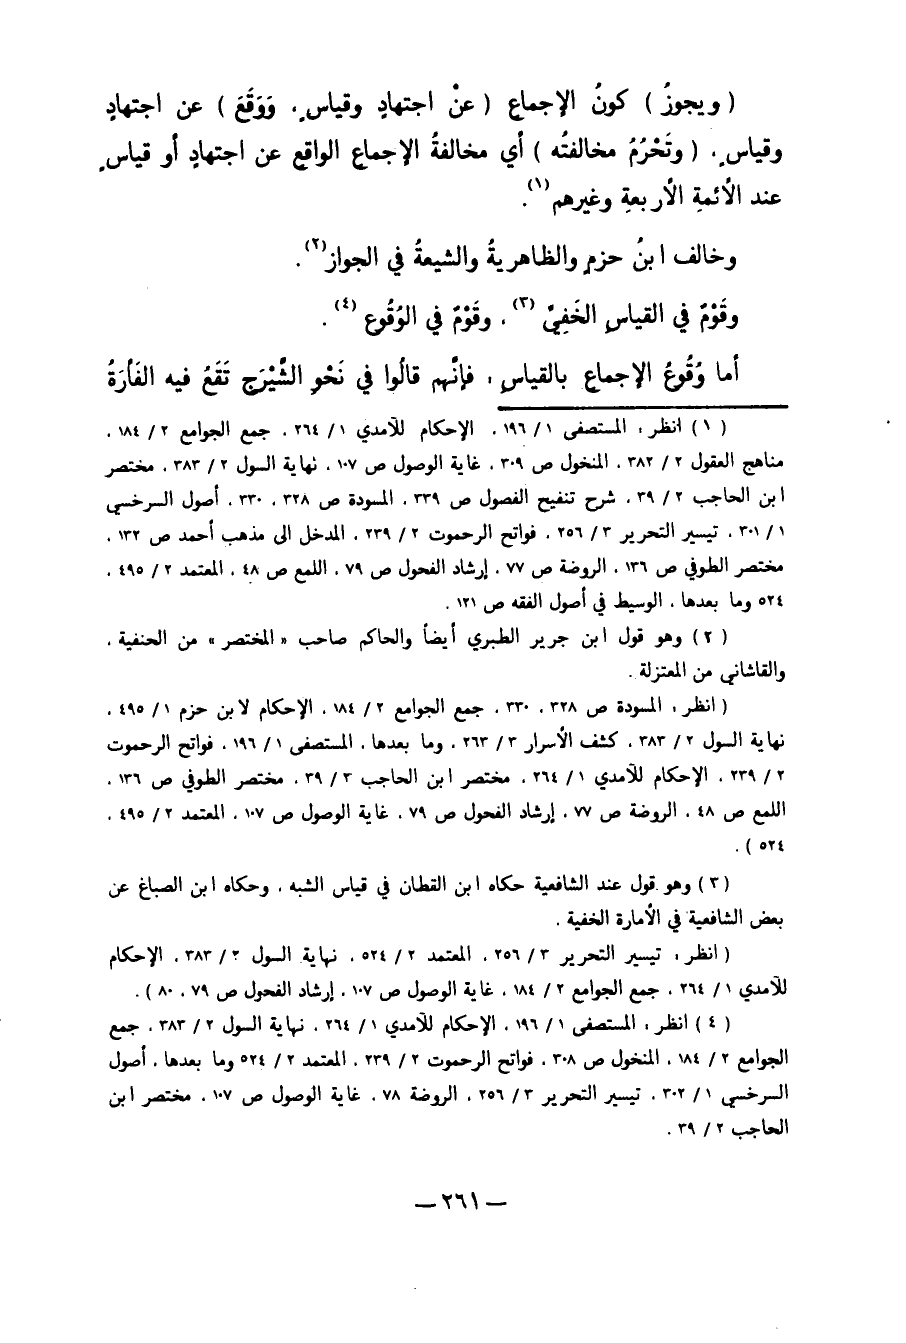 ( ويجوزُ ) كونُ الإجماع ( عنْ اجتهادٍ وقياسٍ ، وَوَقَعَ ) عن اجتهادٍ
وقياسٍ ، ( وتَحْرُمُ مخالفتُه ) أي مخالفةُ الإجماع الواقع عن اجتهادٍ أو قياسٍ
عند الأئمةِ الأربعةِ وغيرهم(١).
وخالف ابنُ حزمٍ والظاهريةُ والشيعةُ في الجواز(٢).
وقَوْمٌ في القياسِ الخَفِيِّ (٣) ، وقَوْمٌ في الوُقُوع (٤) .
أما وُقُوعُ الإجماع بالقياسِ ، فإنَّهم قالُوا في نَحْوِ الشَّيْرَج تَقَعُ فيه الفَأْرَةُ
( ١ ) انظر : المستصفى ١ / ١٩٦ ، الإحكام للآمدي ١ / ٢٦٤ ، جمع الجوامع ٢ / ١٨٤ ،
مناهج العقول ٢ / ٣٨٢ ، المنخول ص ٣٠٩ ، غاية الوصول ص ١٠٧ ، نهاية السول ٢ / ٣٨٣ ، مختصر
ابن الحاجب ٢ / ٣٩ ، شرح تنقيح الفصول ص ٣٣٩ ، المسودة ص ٣٢٨ ، ٣٣٠ ، أصول السرخسي
١ / ٣٠١ ، تيسير التحرير ٣ / ٢٥٦ ، فواتح الرحموت ٢ / ٢٣٩ ، المدخل الى مذهب أحمد ص ١٣٢ ،
مختصر الطوفي ص ١٣٦ ، الروضة ص ٧٧ ، إرشاد الفحول ص ٧٩ ، اللمع ص ٤٨ ، المعتمد ٢ / ٤٩٥ ،
٥٢٤ وما بعدها ، الوسيط في أصول الفقه ص ١٢١ .
( ٢ ) وهو قول ابن جرير الطبري أيضاً والحاكم صاحب « المختصر » من الحنفية ،
والقاشاني من المعتزلة .
( انظر : المسودة ص ٣٢٨ ، ٣٣٠ ، جمع الجوامع ٢ / ١٨٤ ، الإحكام لابن حزم ١ / ٤٩٥ ،
نهاية السول ٢ / ٣٨٣ ، كشف الأسرار ٣ / ٢٦٣ ، وما بعدها ، المستصفى ١ / ١٩٦ ، فواتح الرحموت
٢ / ٢٣٩ ، الإحكام للآمدي ١ / ٢٦٤ ، مختصر ابن الحاجب ٣ / ٣٩ ، مختصر الطوفي ص ١٣٦ ،
اللمع ص ٤٨ ، الروضة ص ٧٧ ، إرشاد الفحول ص ٧٩ ، غاية الوصول ص ١٠٧ ، المعتمد ٢ / ٤٩٥ ،
٥٢٤ ) .
( ٣ ) وهو قول عند الشافعية حكاه ابن القطان في قياس الشبه ، وحكاه ابن الصباغ عن
بعض الشافعية في الأمارة الخفية .
( انظر : تيسير التحرير ٣ / ٢٥٦ ، المعتمد ٢ / ٥٢٤ ، نهاية السول ٢ / ٣٨٣ ، الإحكام
للآمدي ١ / ٢٦٤ ، جمع الجوامع ٢ / ١٨٤ ، غاية الوصول ص ١٠٧ ، إرشاد الفحول ص ٧٩ ، ٨٠ ) .
( ٤ ) انظر : المستصفى ١ / ١٩٦ ، الإحكام للآمدي ١ / ٢٦٤ ، نهاية السول ٢ / ٣٨٣ ، جمع
الجوامع ٢ / ١٨٤ ، المنخول ص ٣٠٨ ، فواتح الرحموت ٢ / ٢٣٩ ، المعتمد ٢ / ٥٢٤ وما بعدها ، أصول
السرخسي ١ / ٣٠٢ ، تيسير التحرير ٣ / ٢٥٦ ، الروضة ٧٨ ، غاية الوصول ص ١٠٧ ، مختصر ابن
الحاجب ٢ / ٣٩ .
— ٢٦١ —